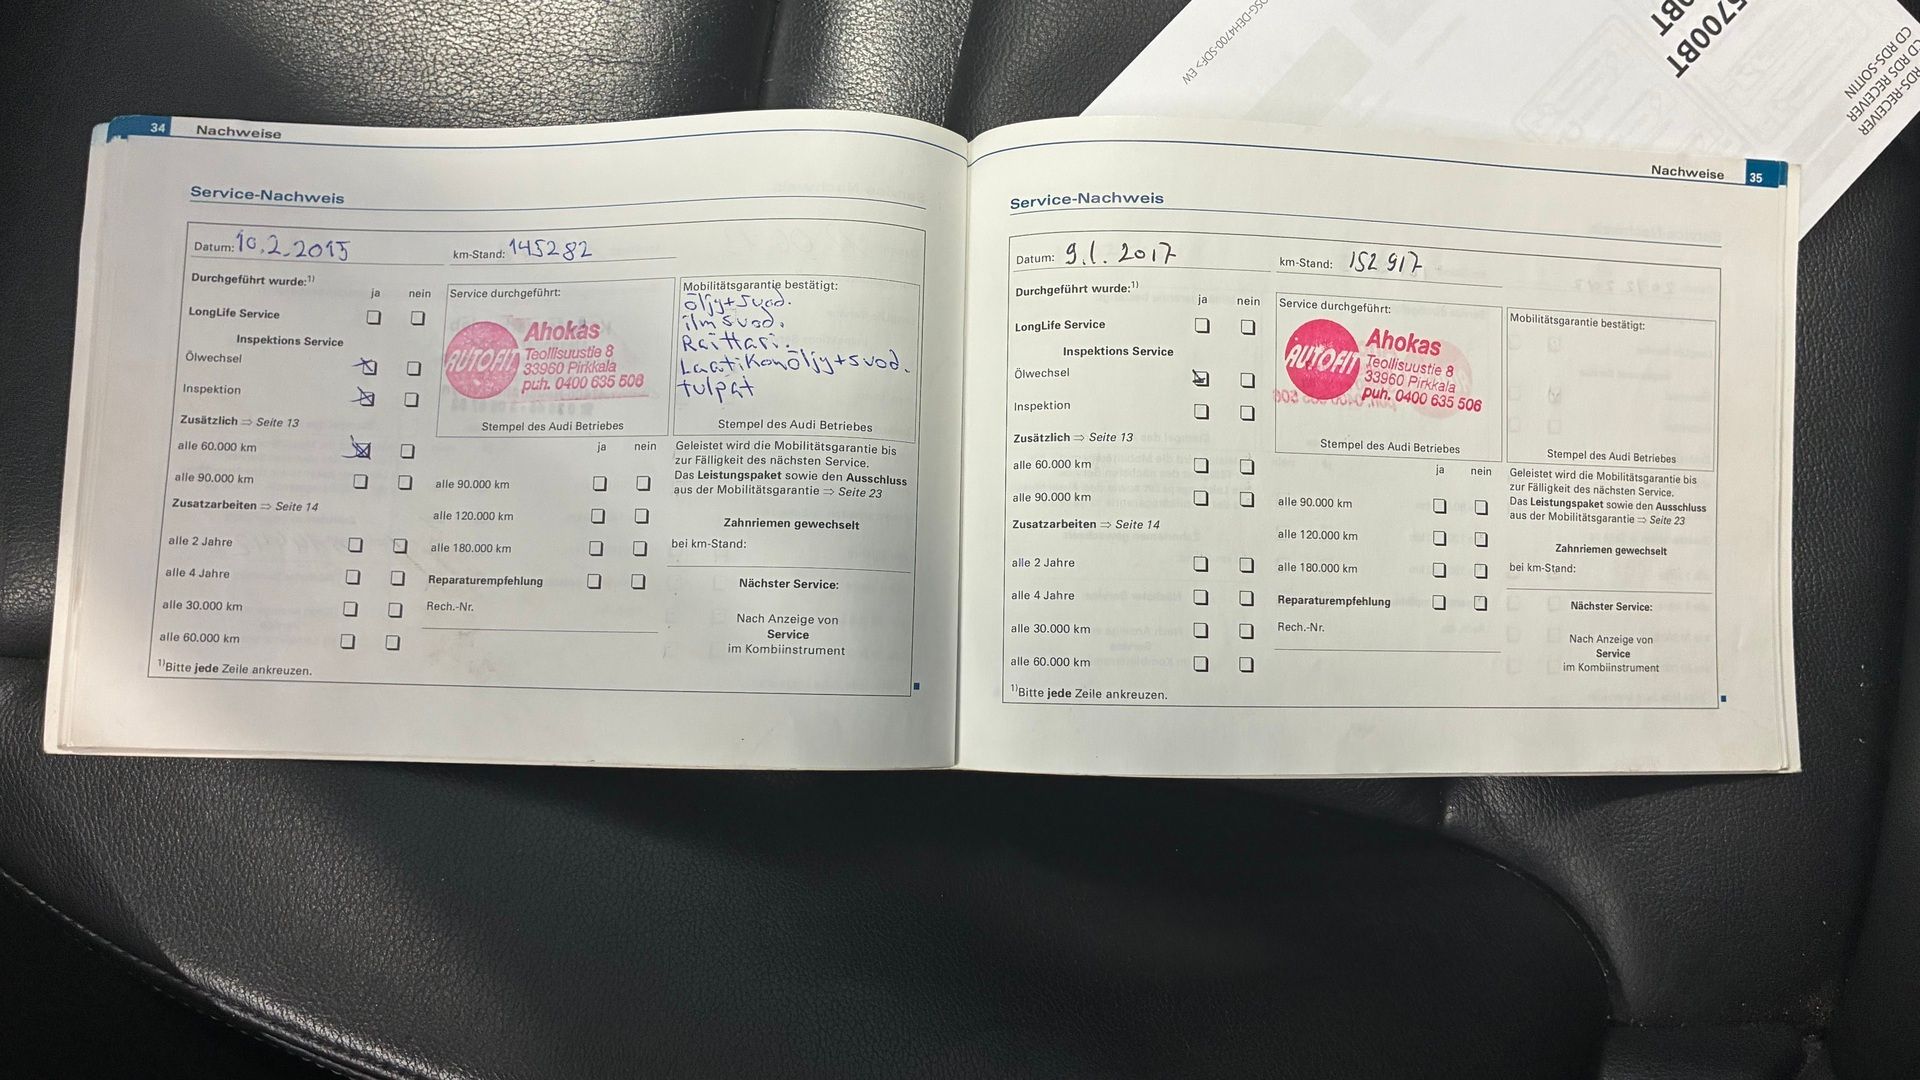 5700BT
0BT
CD RDS-SOTTIN
CD RDS RECEIVER
RDS-RECEIVER
34 Nachweise
Service-Nachweis
Datum: 10.2.2015 km-Stand: 145282
Durchgeführt wurde:1)
ja nein
LongLife Service
Inspektions Service
Ölwechsel
Inspektion
Zusätzlich ⇒ Seite 13
alle 60.000 km
alle 90.000 km
Zusatzarbeiten ⇒ Seite 14
alle 2 Jahre
alle 4 Jahre
alle 30.000 km
alle 60.000 km
1)Bitte jede Zeile ankreuzen.
Service durchgeführt:
AUTOFIT
Ahokas
Teollisuustie 8
33960 Pirkkala
puh. 0400 635 506
Stempel des Audi Betriebes
ja nein
alle 90.000 km
alle 120.000 km
alle 180.000 km
Reparaturempfehlung
Rech.-Nr.
Mobilitätsgarantie bestätigt:
öljy+suod.
ilmsuod.
Raittari.
Laatikonöljy+suod.
tulpat
Stempel des Audi Betriebes
Geleistet wird die Mobilitätsgarantie bis
zur Fälligkeit des nächsten Service.
Das Leistungspaket sowie den Ausschluss
aus der Mobilitätsgarantie ⇒ Seite 23
Zahnriemen gewechselt
bei km-Stand:
Nächster Service:
Nach Anzeige von
Service
im Kombiinstrument
Nachweise 35
Service-Nachweis
Datum: 9.1.2017 km-Stand: 152917
Durchgeführt wurde:1)
ja nein
LongLife Service
Inspektions Service
Ölwechsel
Inspektion
Zusätzlich ⇒ Seite 13
alle 60.000 km
alle 90.000 km
Zusatzarbeiten ⇒ Seite 14
alle 2 Jahre
alle 4 Jahre
alle 30.000 km
alle 60.000 km
1)Bitte jede Zeile ankreuzen.
Service durchgeführt:
AUTOFIT
Ahokas
Teollisuustie 8
33960 Pirkkala
puh. 0400 635 506
Stempel des Audi Betriebes
ja nein
alle 90.000 km
alle 120.000 km
alle 180.000 km
Reparaturempfehlung
Rech.-Nr.
Mobilitätsgarantie bestätigt:
Stempel des Audi Betriebes
Geleistet wird die Mobilitätsgarantie bis
zur Fälligkeit des nächsten Service.
Das Leistungspaket sowie den Ausschluss
aus der Mobilitätsgarantie ⇒ Seite 23
Zahnriemen gewechselt
bei km-Stand:
Nächster Service:
Nach Anzeige von
Service
im Kombiinstrument